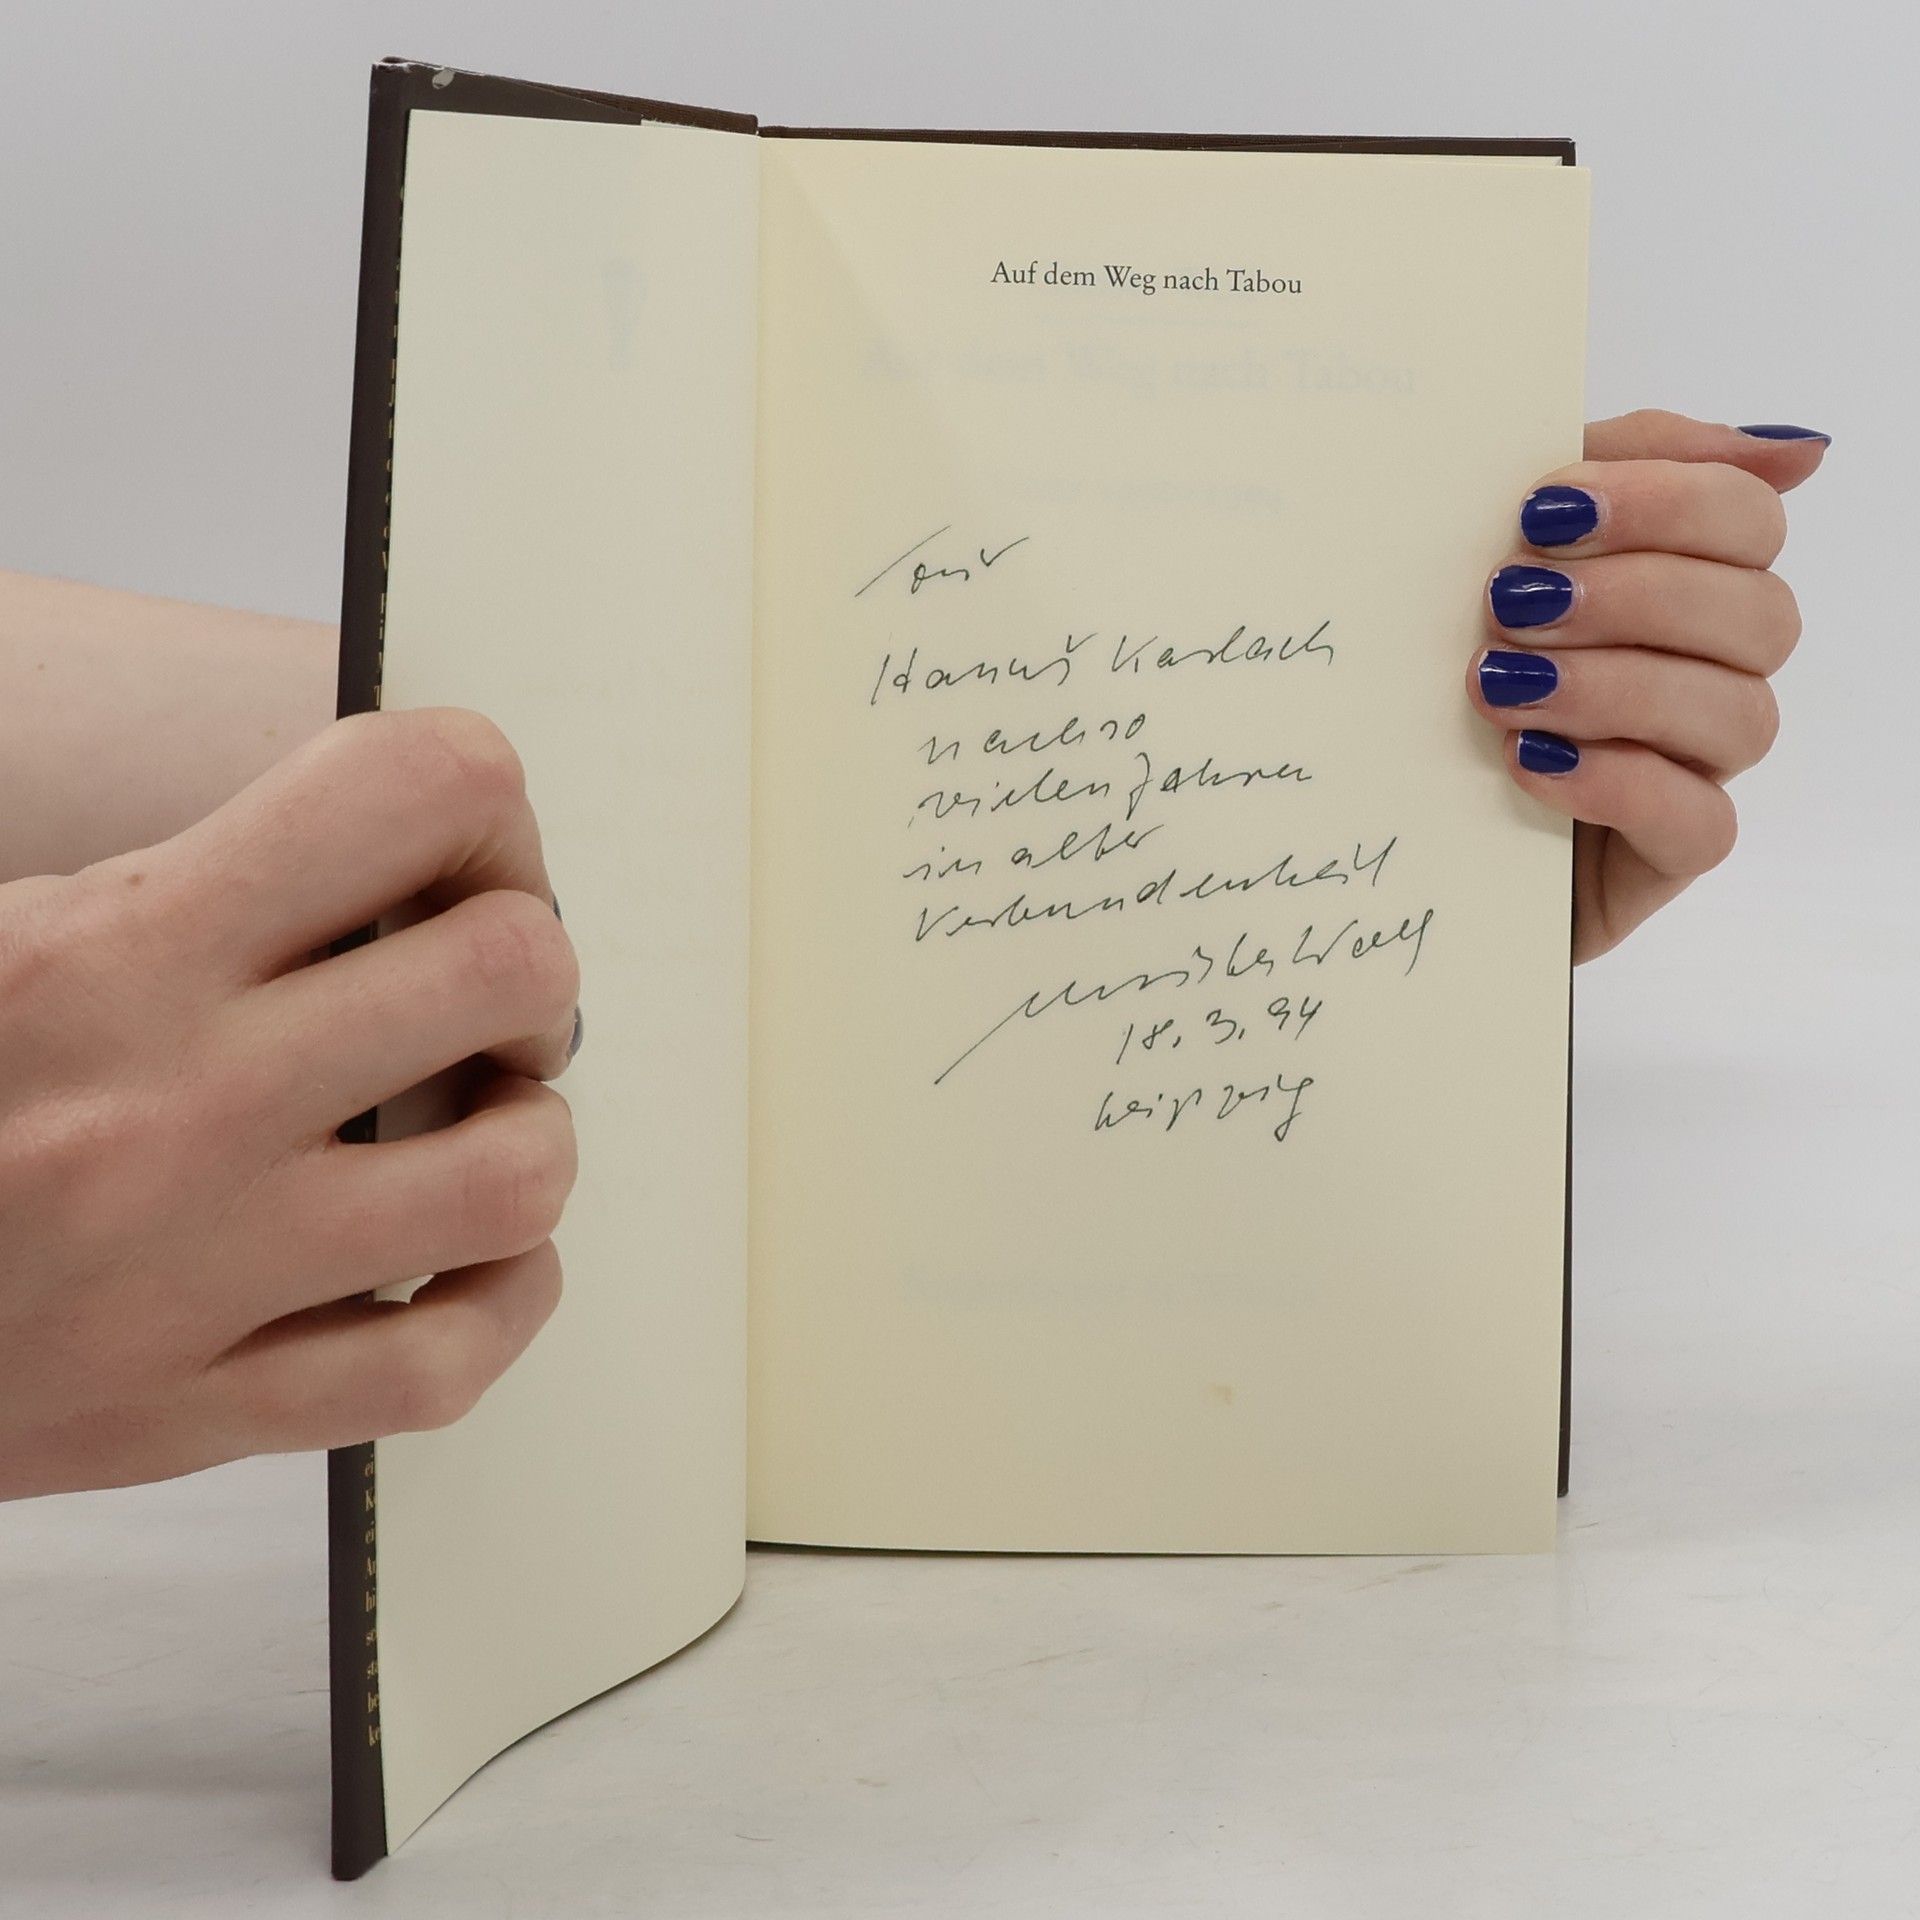 Auf dem Weg nach Tabou
für
Hanuš Karlach
nach so
vielen Jahren
in alter
Verbundenheit
Christa Wolf
18. 3. 94
Leipzig